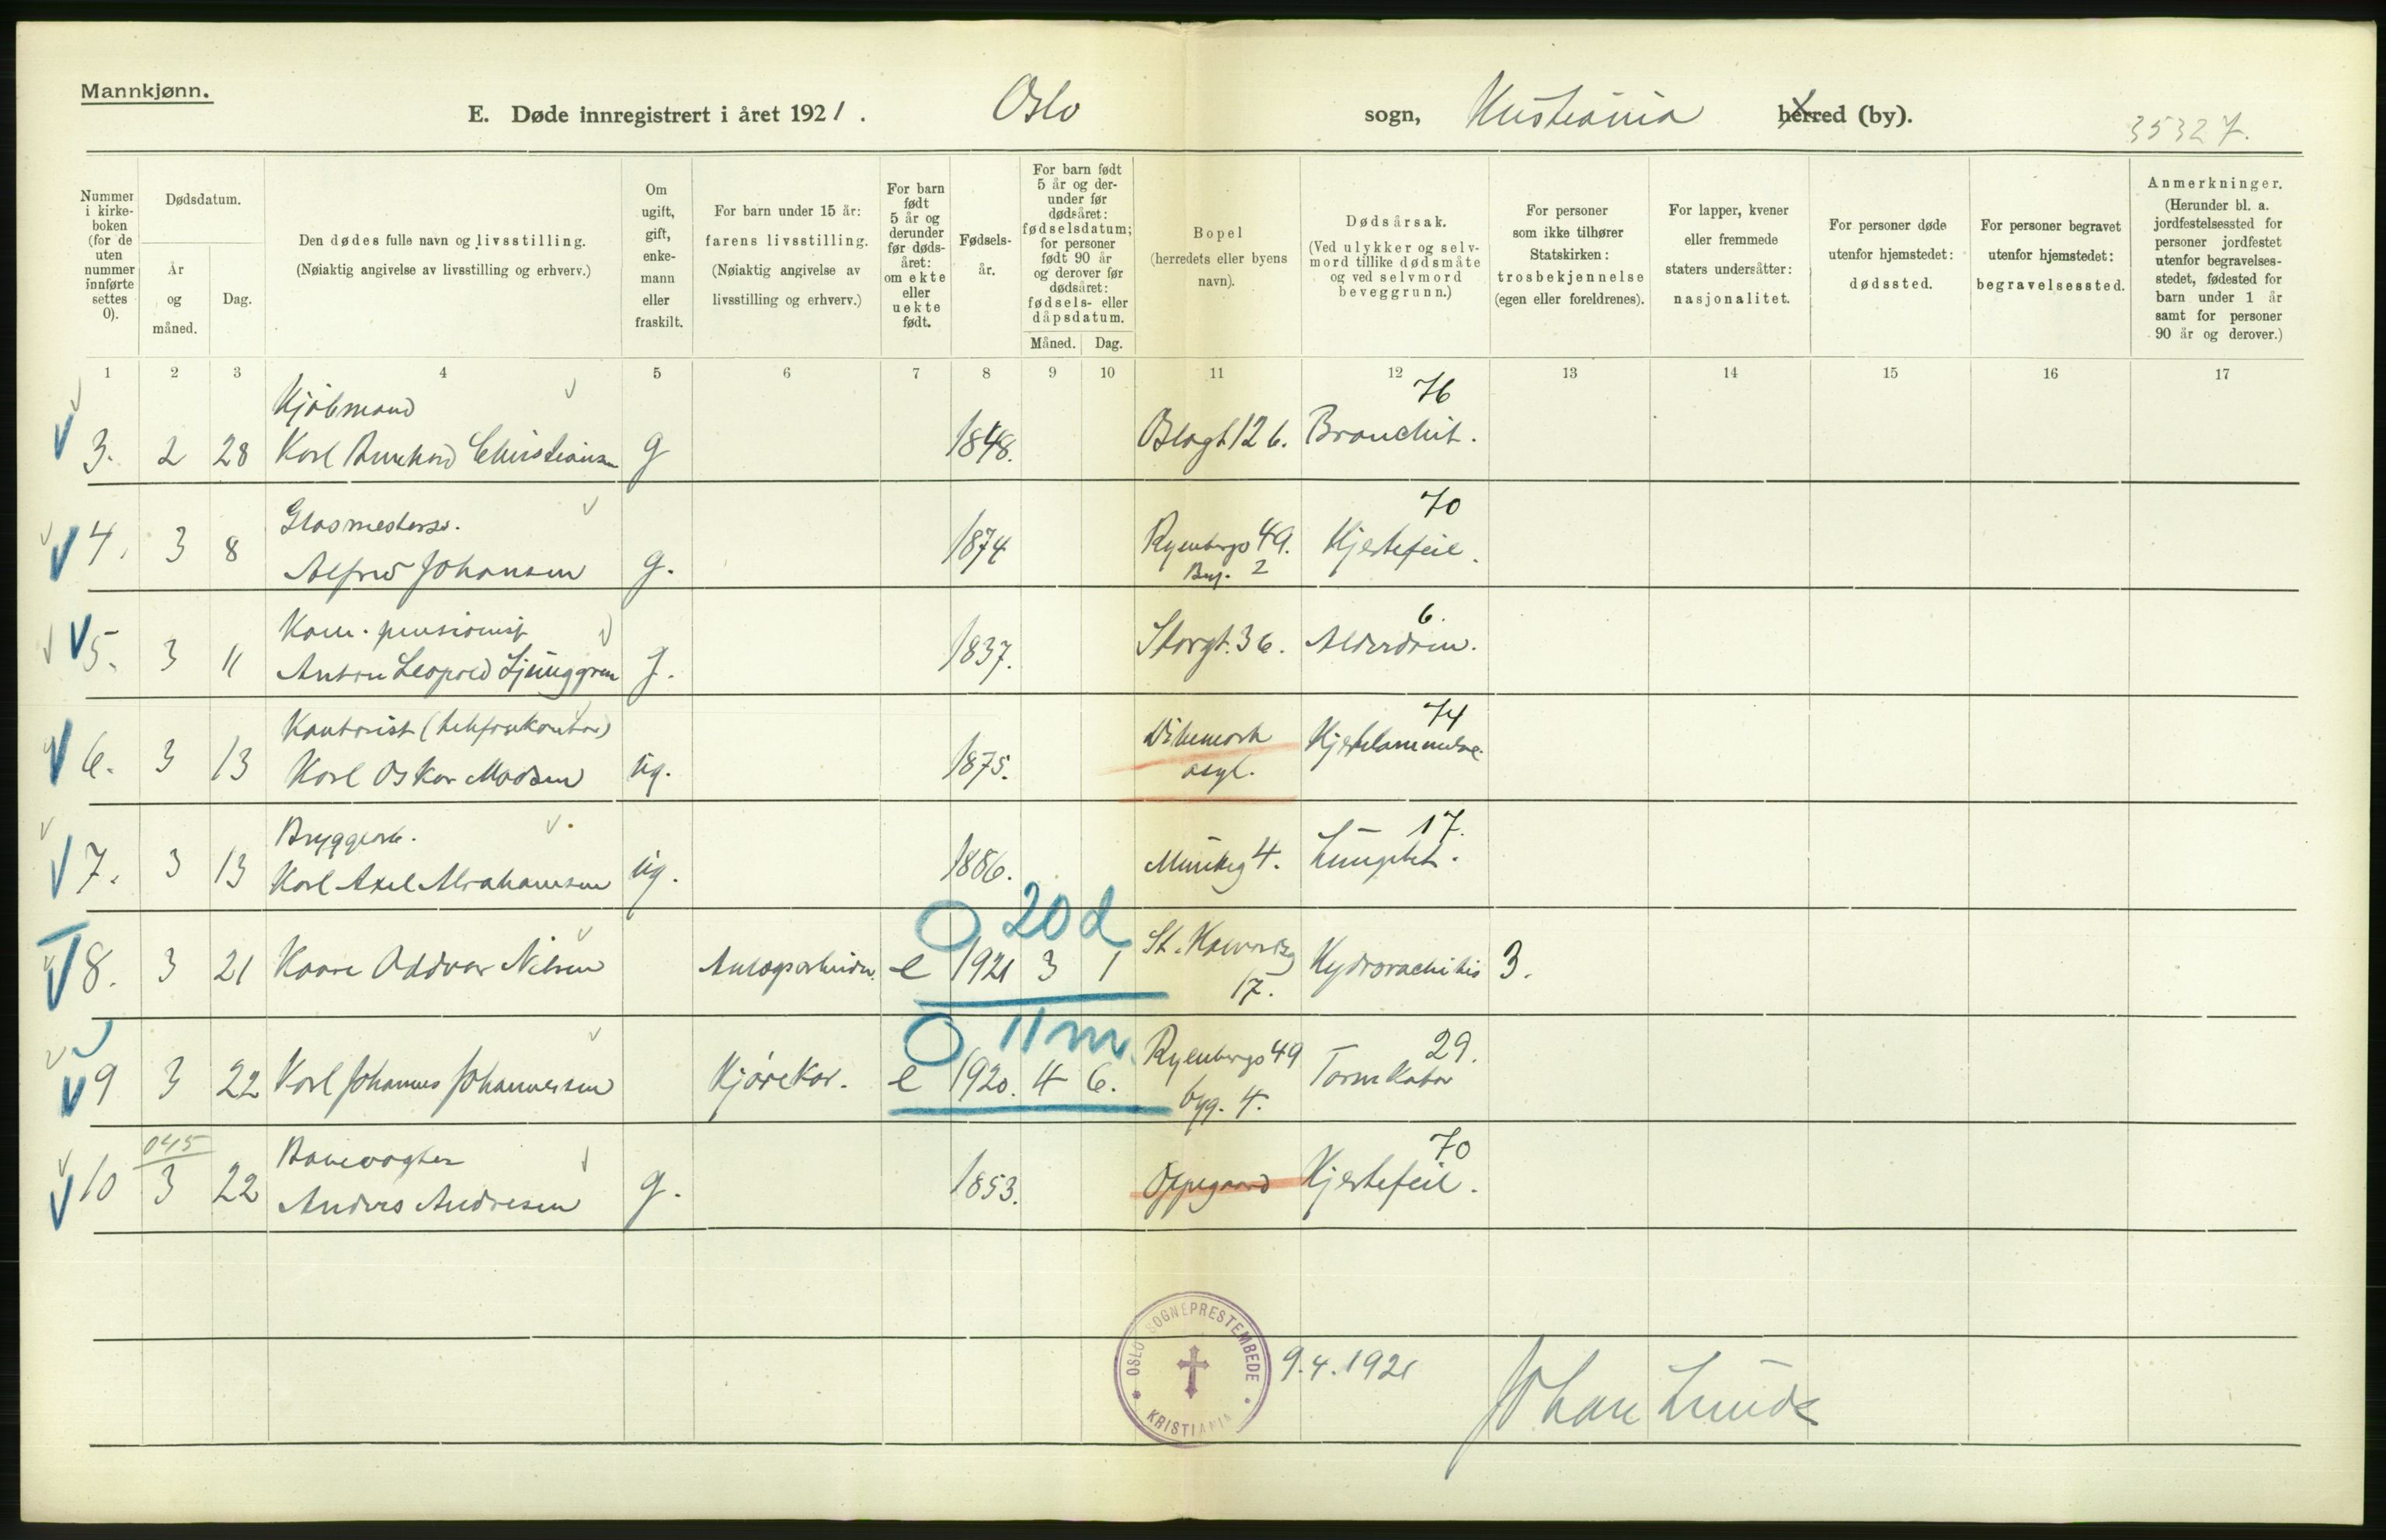 Mannkjønn.
E. Døde innregistrert i året 1921. Oslo sogn, Kristiania herred (by). 35327.
Nummer i kirkeboken (for de uten nummer innførte settes 0).
Dødsdatum.
År og måned.
Dag.
Den dødes fulle navn og livsstilling.
(Nøiaktig angivelse av livsstilling og erhverv.)
Om ugift, gift, enkemann eller fraskilt.
For barn under 15 år: farens livsstilling.
(Nøiaktig angivelse av livsstilling og erhverv.)
For barn født 5 år og derunder før dødsåret: om ekte eller uekte født.
Fødselsår.
For barn født 5 år og derunder før dødsåret: fødselsdatum; for personer født 90 år og derover før dødsåret: fødsels- eller dåpsdatum.
Måned. Dag.
Bopel (herredets eller byens navn).
Dødsårsak.
(Ved ulykker og selvmord tillike dødsmåte og ved selvmord beveggrunn.)
For personer som ikke tilhører Statskirken: trosbekjennelse (egen eller foreldrenes).
For lapper, kvener eller fremmede staters undersåtter: nasjonalitet.
For personer døde utenfor hjemstedet: dødssted.
For personer begravet utenfor hjemstedet: begravelsessted.
Anmerkninger.
(Herunder bl. a. jordfestelsessted for personer jordfestet utenfor begravelsesstedet, fødested for barn under 1 år samt for personer 90 år og derover.)
1 2 3 4 5 6 7 8 9 10 11 12 13 14 15 16 17
Kjøbmand 76
3. 2 28 Karl Christiansen g 1848. 126. Bronchit.
Glasmesters. 70
4. 3 8 Alfred Johansen g. 1874 Ryenbergv 49. Hjertefeil.
2
Kom. pensionist 6.
5. 3 11 Anton Leopold Ljunggren g. 1837. Storgt. 36. Alderdom.
Kontorist (telefonkontor) 74
6. 3 13 Karl Oskar Madsen ug. 1875. Dikemark asyl. Hjertelammelse.
Bryggearb. 17.
7. 3 13 Karl Axel Abrahamsen ug. 1886. Munkeg 4. Lungebet.
20 d
8. 3 21 Kaare Oddvar Nilsen Anlægsarbeider. e 1921 3 1 St. Halvardsg 17. Hydrorachitis 3.
11 m
9 3 22 Karl Johannes Johannessen Kjørekar. e 1920. 4 6. Ryenbergv 49 byg. 4. Tarmkatar 29.
045
Banevogter 70
10 3 22 Anders Andresen g. 1853. Oppegaard Hjertefeil.
OSLO SOGNEPRESTEMBEDE
KRISTIANIA
9.4.1921
Johan Lunde